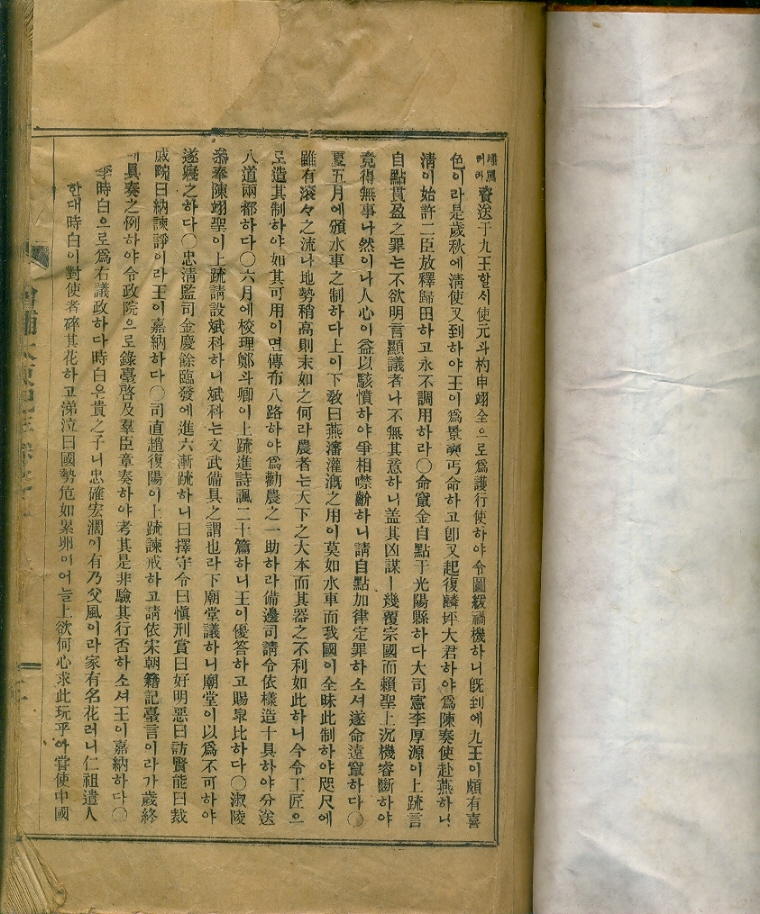 賚送于九王할서使元斗杓申翊全으로爲護行使하야令圖緩禍機하니旣到에九王이頗有喜
色이라是歲秋에淸使又到하야王이爲景奭丐命하고卽又起復麟坪大君하야爲陳奏使赴燕하니
淸이始許二臣放釋歸田하고永不調用하라〇命竄金自點于光陽縣하다大司憲李厚源이上疏言
自點貫盈之罪는不欲明言顯議者나不無其意하니盖其凶謀ㅣ幾覆宗國而賴聖上沉機睿斷하야
竟得無事나然이나人心이益以駭憤하야爭相噤齘하니請自點加律定罪하소셔遂命遠竄하다〇
夏五月에頒水車之制하다上이下敎曰燕瀋灌漑之用이莫如水車而我國이全昧此制하야咫尺에
雖有滾々之流나地勢稍高則末如之何라農者는天下之大本而其器之不利如此하니今令工匠으
로造其制하야如其可用이면傳布八路하야爲勸農之一助하라備邊司請令依樣造十具하야分送
八道兩都하다〇六月에校理鄭斗卿이上疏進詩諷二十篇하니王이優答하고賜皐比하다〇淑陵
叅奉陳翊聖이上疏請設斌科하니斌科는文武備具之謂也라下廟堂議하니廟堂이以爲不可하야
遂寢之하다〇忠淸監司金慶餘臨發에進六漸疏하니曰擇守令曰愼刑賞曰好明惡曰訪賢能曰裁
戚畹曰納諫諍이라王이嘉納하다〇司直趙復陽이上疏諫戒하고請依宋朝籍記臺言이라가歲終
具奏之例하야令政院으로錄臺啓及羣臣章奏하야考其是非驗其行否하소셔王이嘉納하다〇
李時白으로爲右議政하다時白은貴之子니忠確宏濶이有乃父風이라家有名花러니仁祖遣人
한대時白이對使者碎其花하고涕泣曰國勢危如累卵이어늘上欲何心求此玩乎아嘗使中國